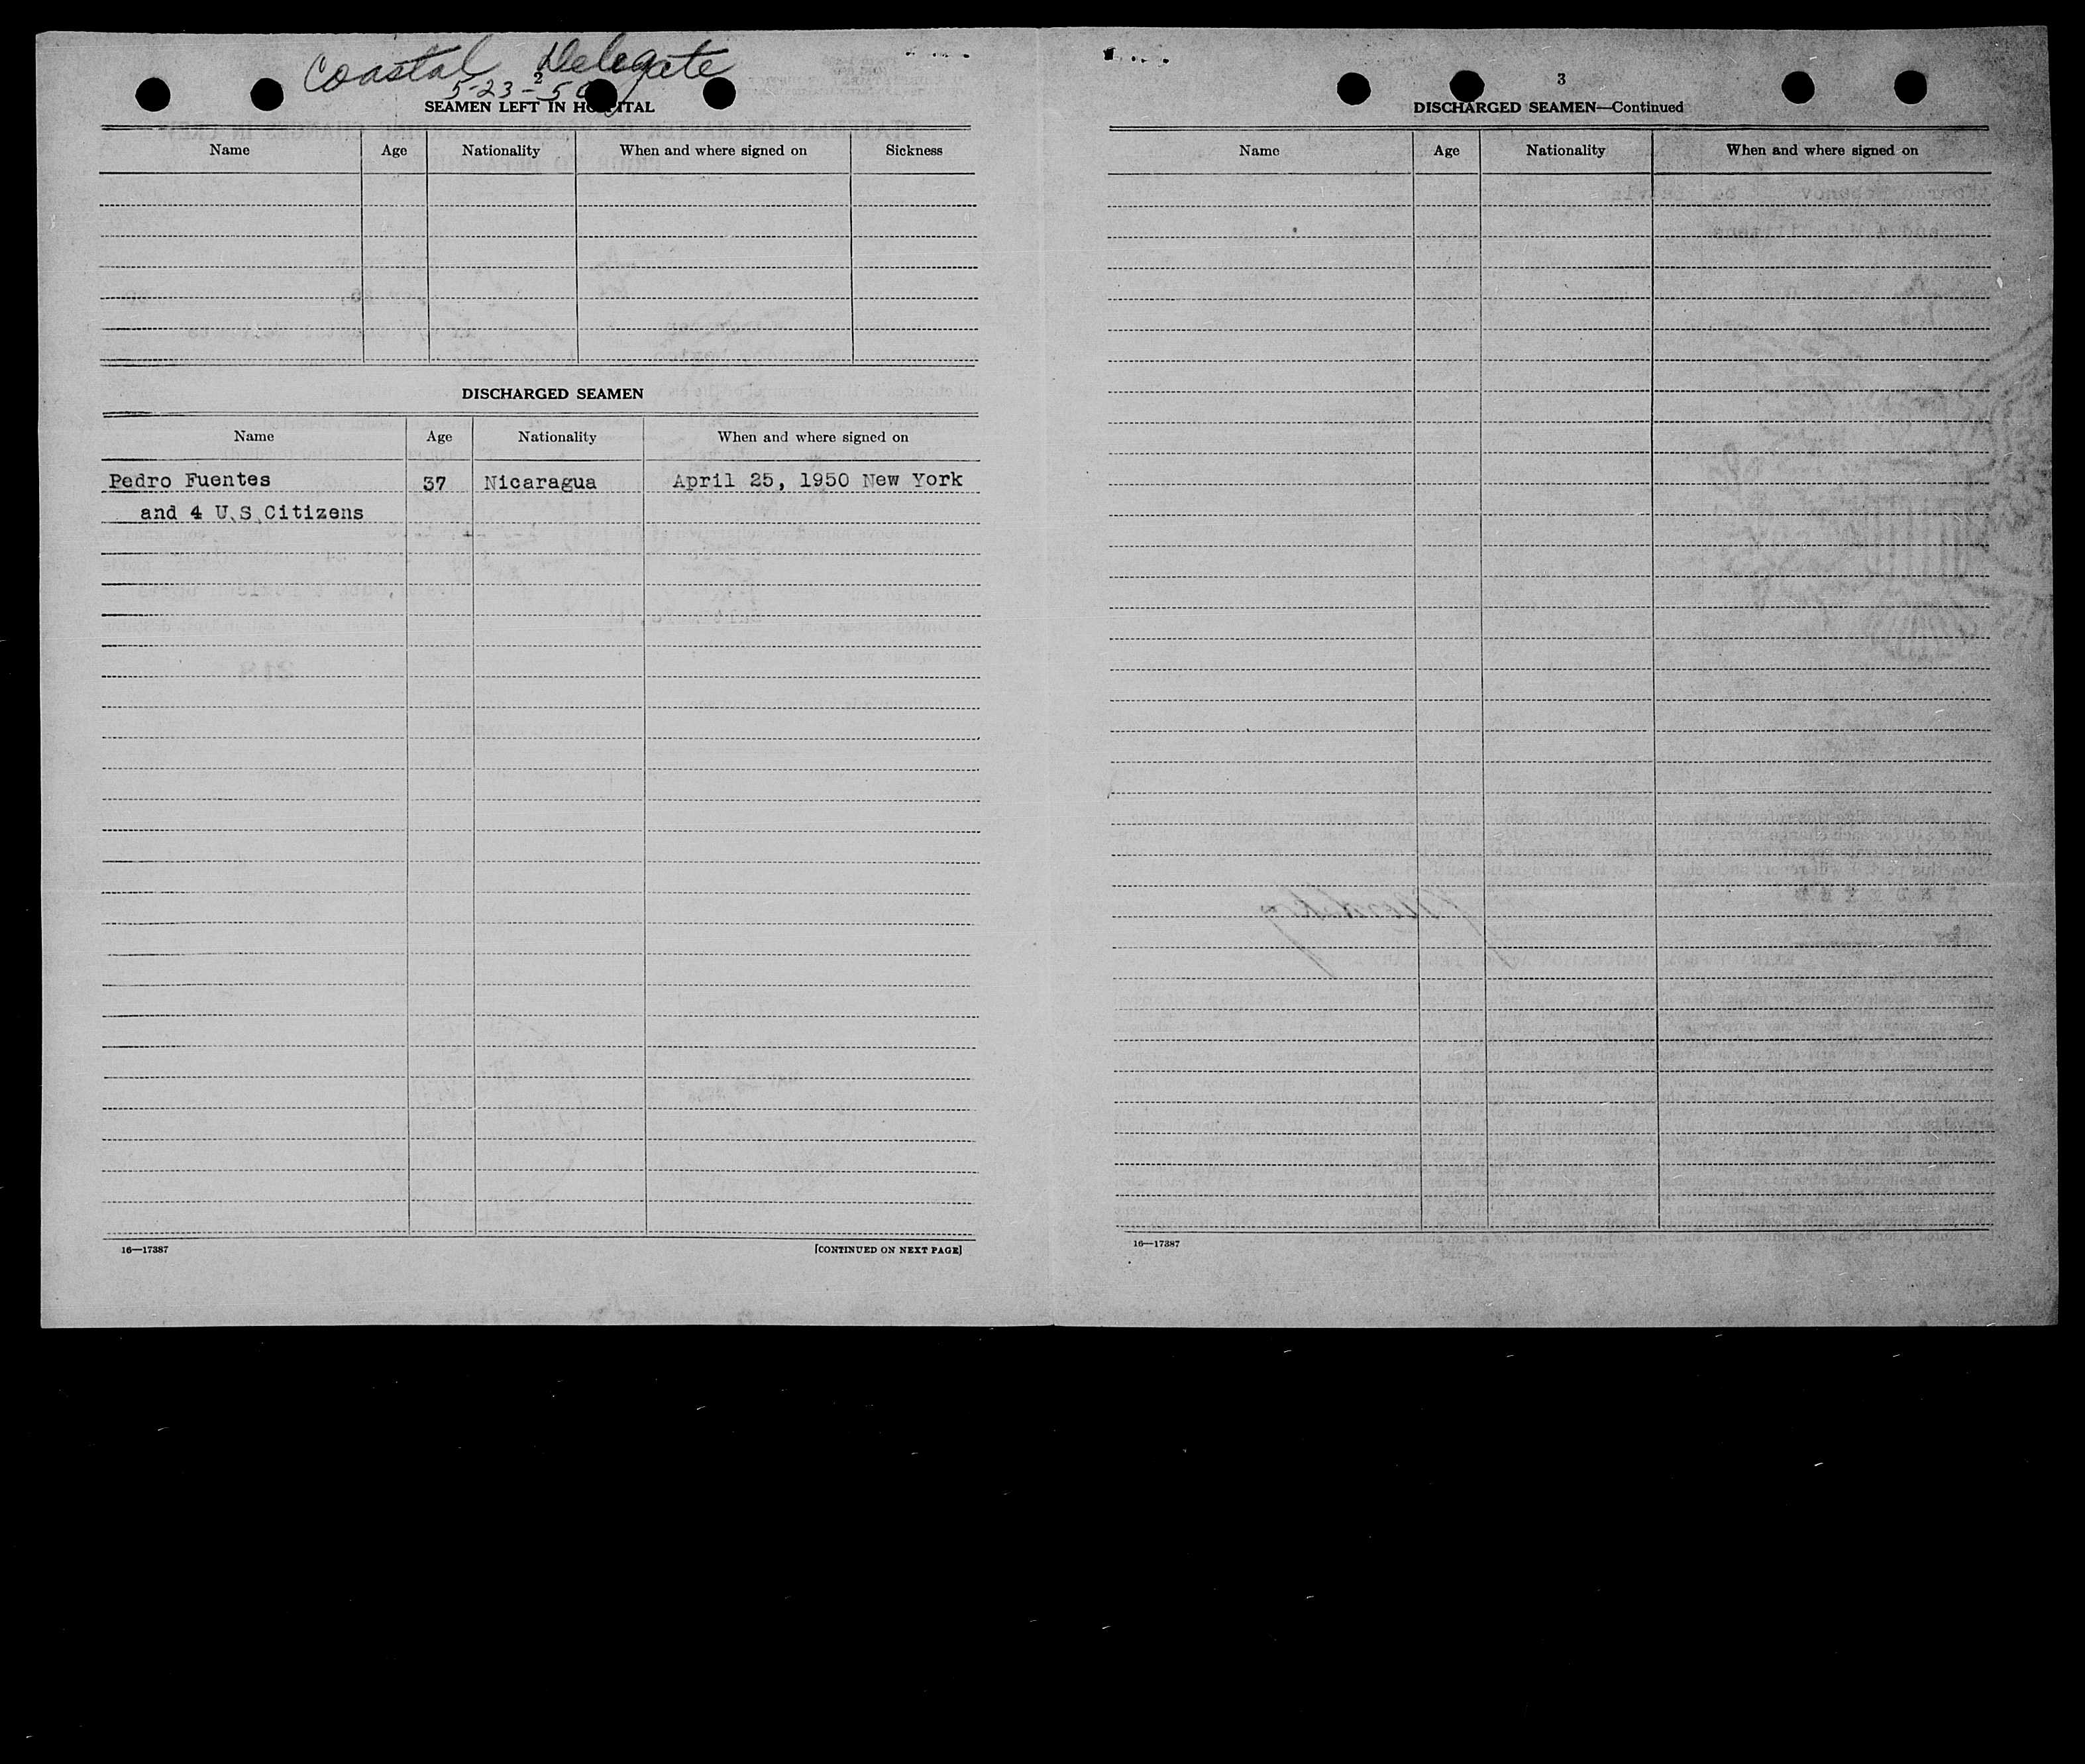 Coastal Delegate
2
5-23-50
SEAMEN LEFT IN HOSPITAL
Name Age Nationality When and where signed on Sickness
DISCHARGED SEAMEN
Name Age Nationality When and where signed on
Pedro Fuentes 37 Nicaragua April 25, 1950 New York
and 4 U.S. Citizens
16—17387 [CONTINUED ON NEXT PAGE]
3
DISCHARGED SEAMEN—Continued
Name Age Nationality When and where signed on
16—17387